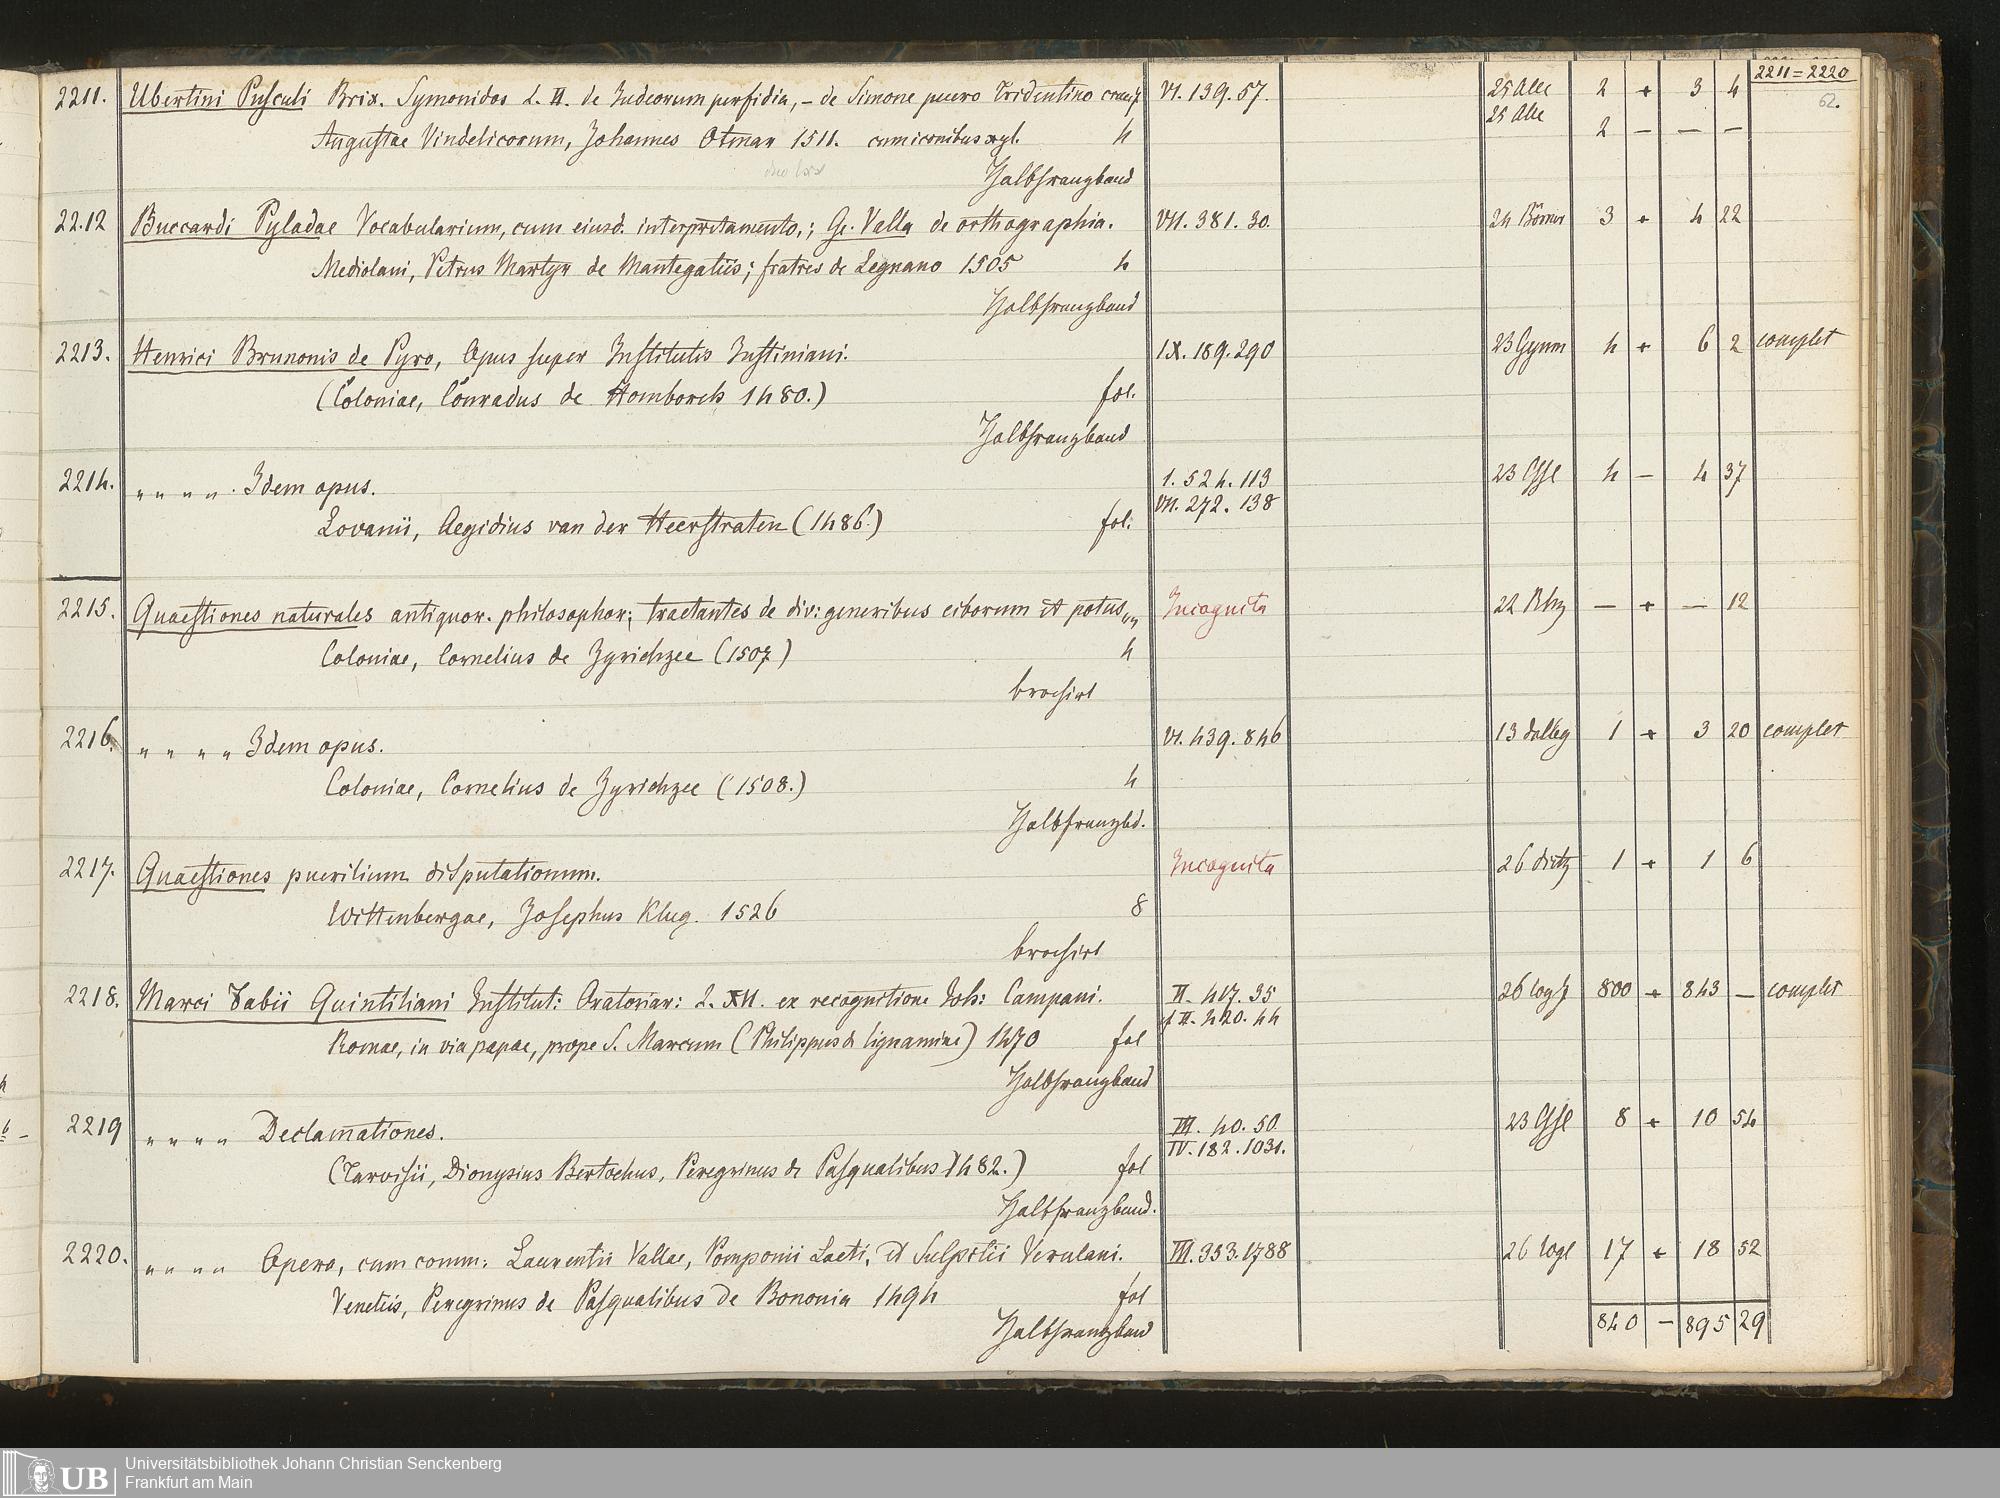 2211=2220
62.
2211. Ubertini Pusculi Brix. Symonidos L. II. de Judeorum perfidia, – de Simone puero Tridentino VI. 139. 57. 2 + 3 4
Augustae Vindelicorum, Johannes Otmar 1511. cum iconibus xyl. 4 2 — — —
Halbfranzband
2212 Buccardi Pyladae Vocabularium, cum eiusd. interpretamento,; G. Valla de orthographia. VII. 381. 30. 24 3 + 4 22
Mediolani, Petrus Martyr de Mantegatiis; fratres de Legnano 1505 4
Halbfranzband
2213. Henrici Brunonis de Pyro, Opus super Institutis Justiniani. IX. 189. 290 23 Gymn 4 + 6 2 complet
(Coloniae, Conradus de Homborch 1480.) fol.
Halbfranzband
2214. „ „ „ „ Idem opus. 1. 524. 113 23 4 — 4 37
VII. 272. 138
Lovanii, Aegidius van der Heerstraten (1486.) fol.
2215. Quaestiones naturales antiquor. philosophor; tractantes de div: generibus ciborum et potus„„ Incognita 22 — + — 12
Coloniae, Cornelius de Zyrichzee (1507) 4
brochirt
2216. „ „ „ „ Idem opus. VI. 439. 846 13 1 + 3 20 complet
Coloniae, Cornelius de Zyrichzee (1508.) 4
Halbfranzbd.
2217. Quaestiones puerilium disputationum. Incognita 26 1 + 1 6
Wittenbergae, Josephus Klug. 1526 8
brochirt
2218. Marci Fabii Quintiliani Institut: Orator: L. XII. ex recognitione Joh: Campani. II. 417. 35 26 800 + 843 — complet
cf II. 420. 44
Romae, in via papae, prope S. Marcum (Philippus de lignamine) 1470 fol
Halbfranzband
2219 „ „ „ „ Declamationes. III. 40. 50. 23 8 + 10 54
IV. 182. 1031.
(Tarvisii, Dionysius Bertochus, Peregrinus de Pasqualibus 1482.) fol
Halbfranzband.
2220. „ „ „ „ Opera, cum comm: Laurentii Vallae, Pomponii Laeti, et Sulpitii Verulani. III. 353. 1788 26 17 + 18 52
Venetiis, Peregrinus de Pasqualibus de Bononia 1494 fol
Halbfranzband
840 — 895 29
UB Universitätsbibliothek Johann Christian Senckenberg
Frankfurt am Main